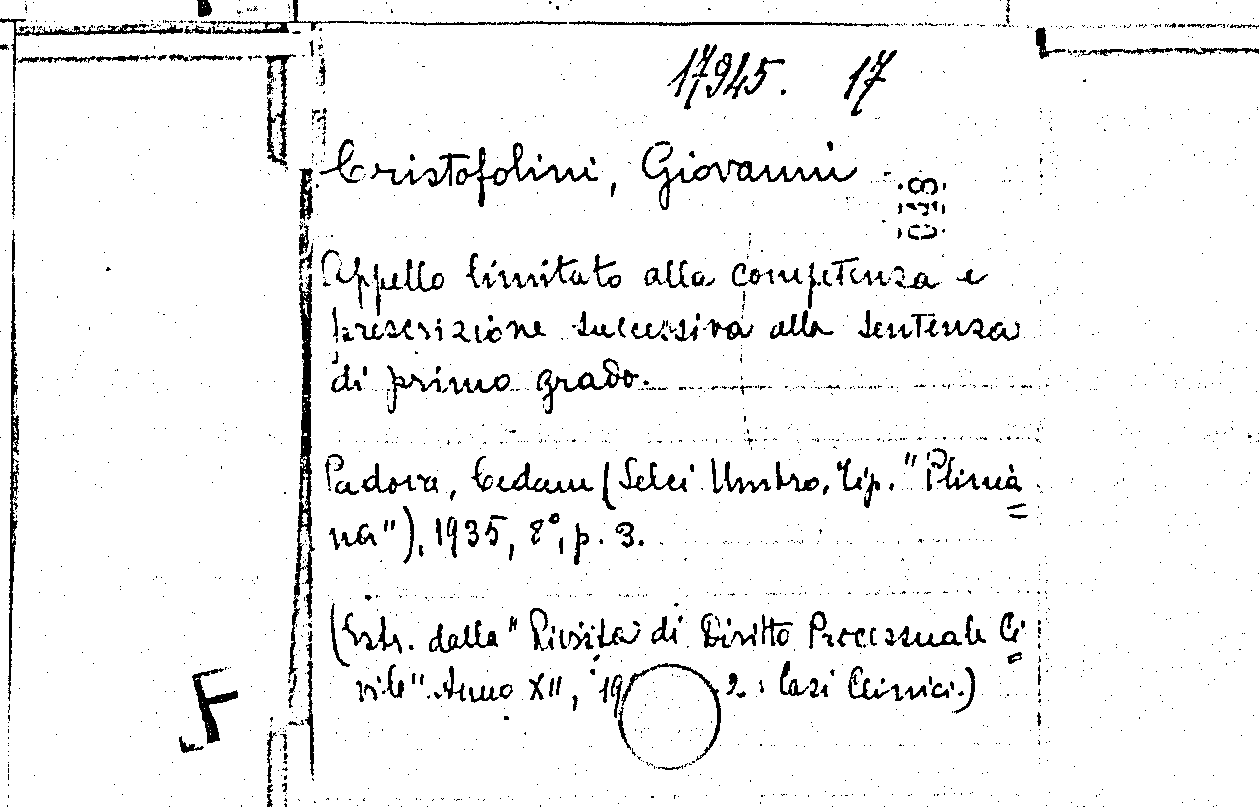 17945. 17
Cristofolini, Giovanni
Appello limitato alla competenza e
prescrizione successiva alla sentenza
di primo grado.
Padova, Cedam (Selci Umbro, Tip. "Plinia=
na"), 1935, 8°, p. 3.
(Estr. dalla "Rivista di Diritto Processuale Ci=
vile" Anno XII, 2: Casi Clinici.)
F